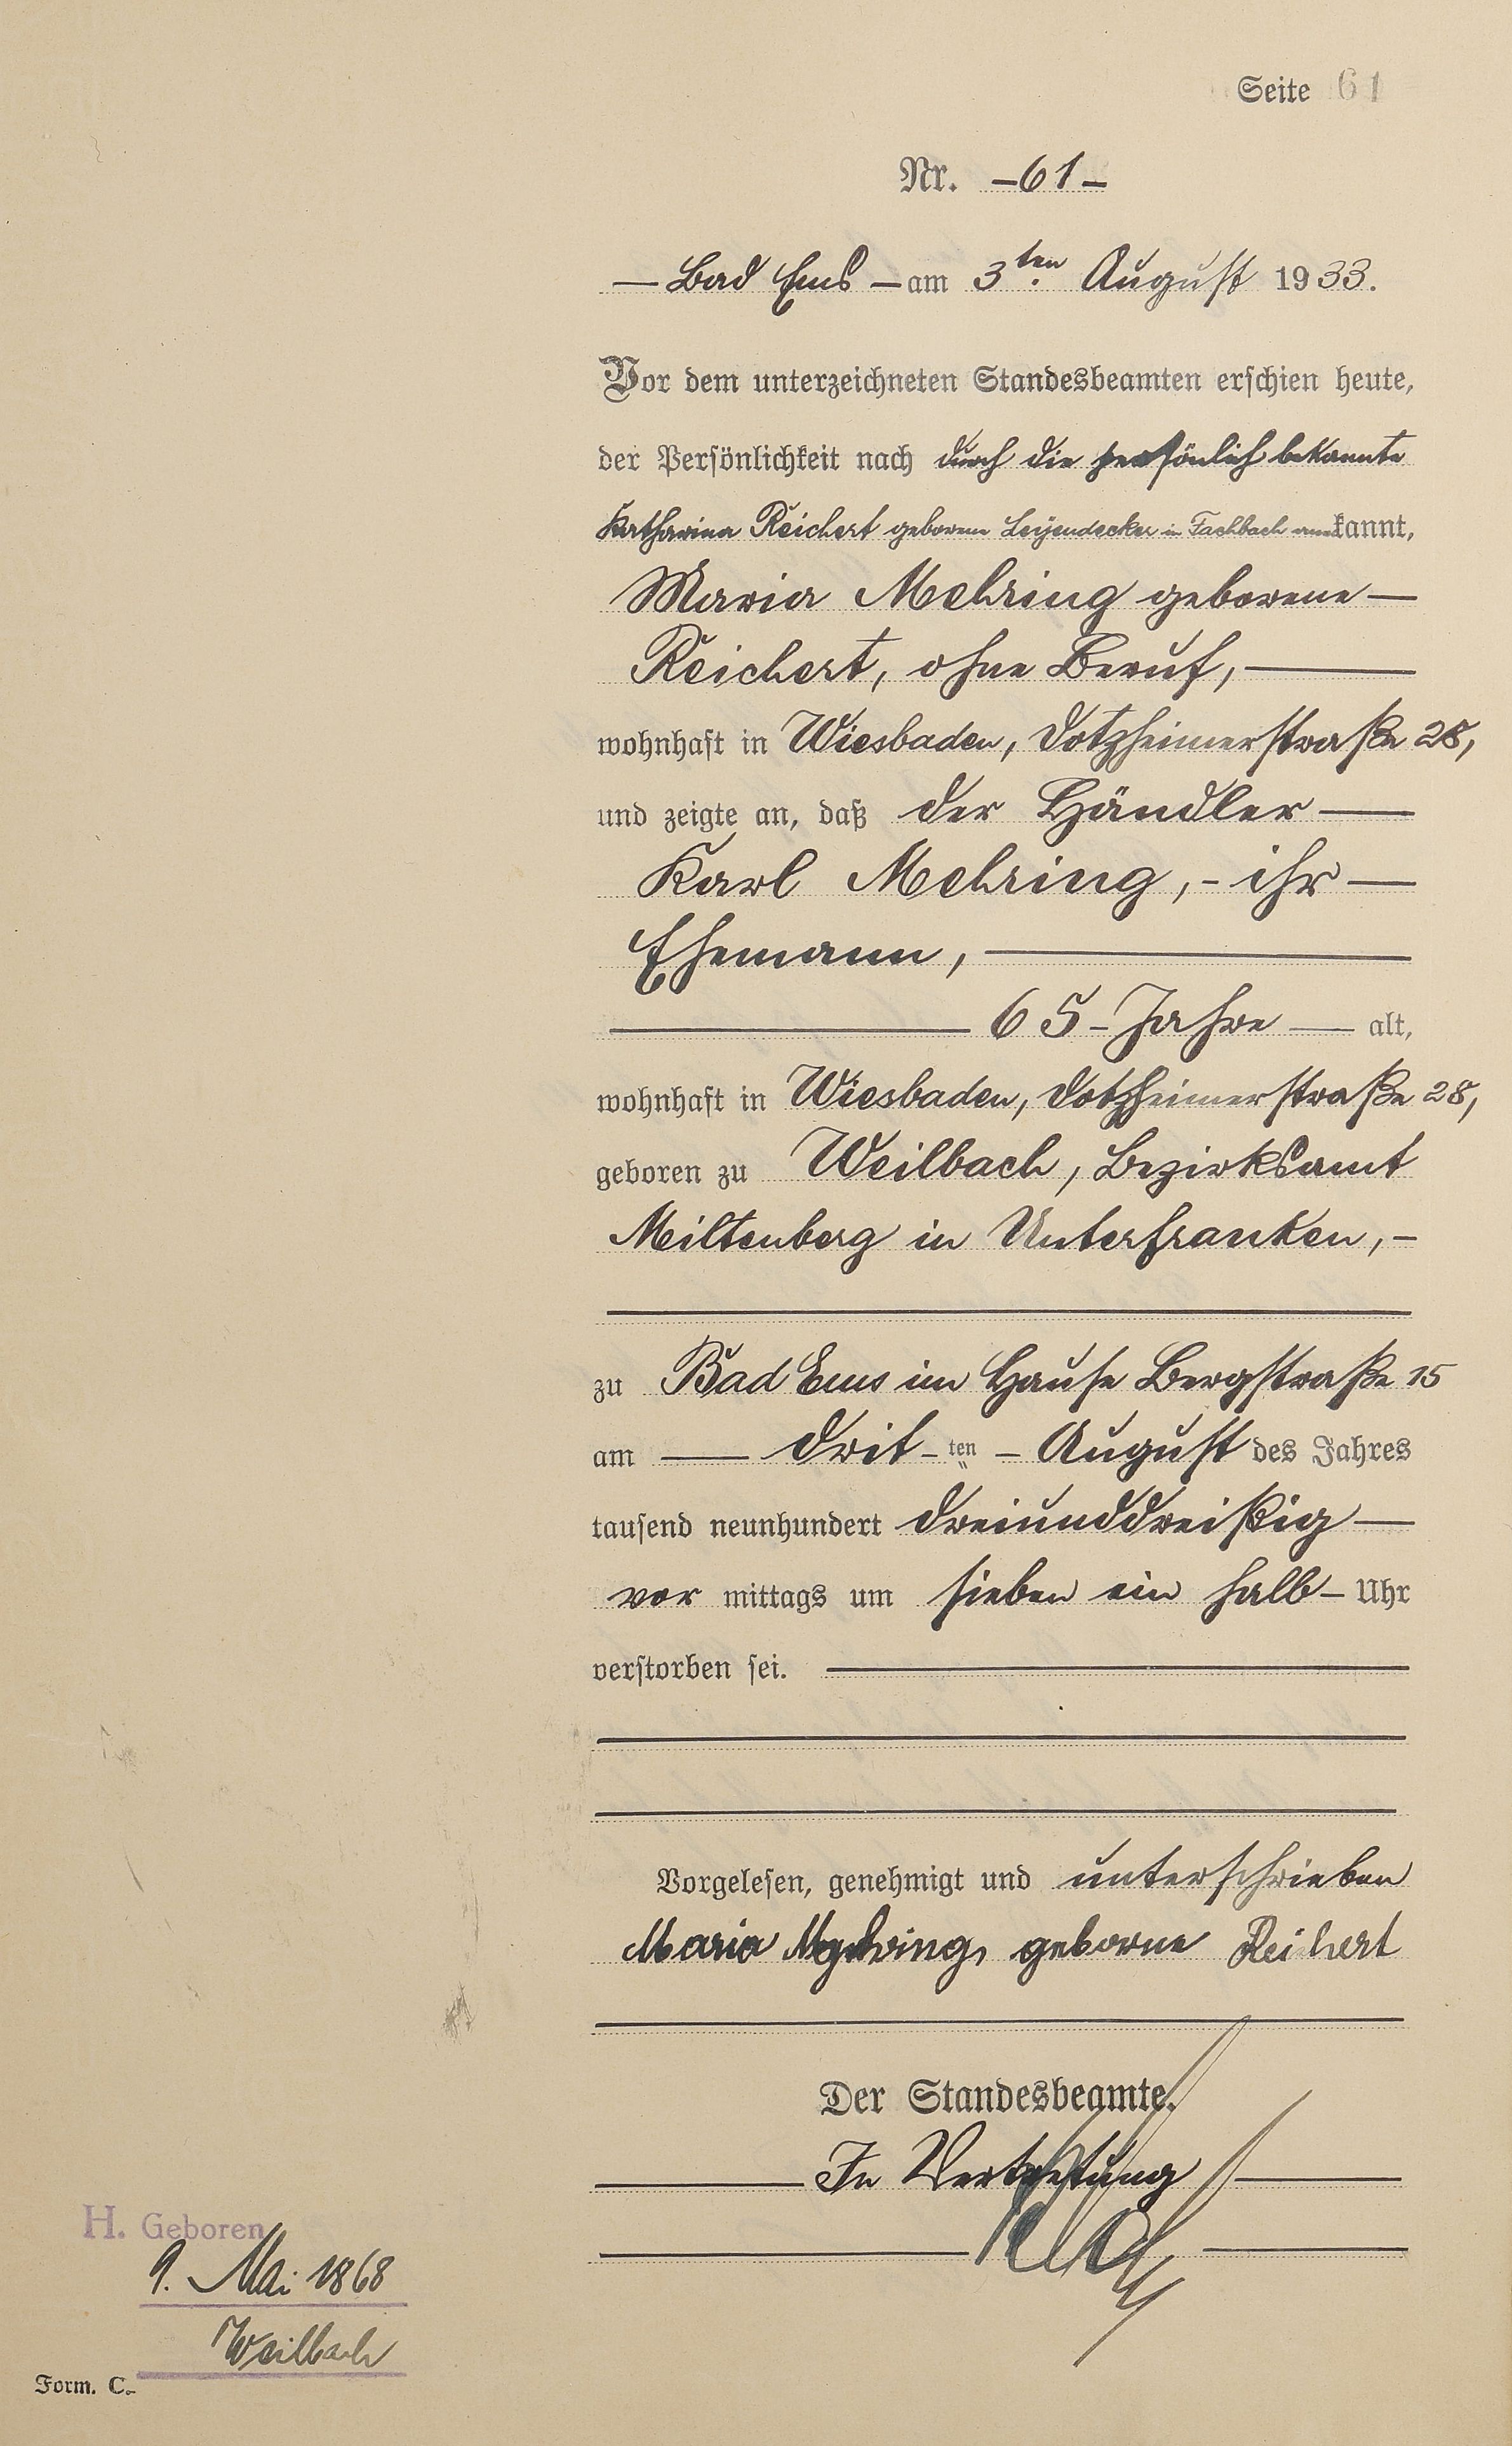 Seite 61
Nr. -61-
— Bad Ems — am 3ten August 1933.
Vor dem unterzeichneten Standesbeamten erschien heute,
der Persönlichkeit nach durch die persönlich bekannte
Katharina Reichert geborene Leyendecker in Fachbach anerkannt,
Maria Mehring geborene —
Reichert, ohne Beruf, —
wohnhaft in Wiesbaden, Dotzheimerstraße 28,
und zeigte an, daß der Händler —
Karl Mehring, - ihr —
Ehemann, —
— 65 - Jahre — alt,
wohnhaft in Wiesbaden, Dotzheimerstraße 28,
geboren zu Weilbach, Bezirksamt
Miltenberg in Unterfranken, -
zu Bad Ems im Hause Bergstraße 15
am — drit - ten - August des Jahres
tausend neunhundert dreiunddreißig —
vor mittags um sieben ein halb - Uhr
verstorben sei. —
Vorgelesen, genehmigt und unterschrieben
Maria Mehring, geborne Reichert
Der Standesbeamte.
In Vertretung
H. Geboren
9. Mai 1868
Weilbach
Form. C.